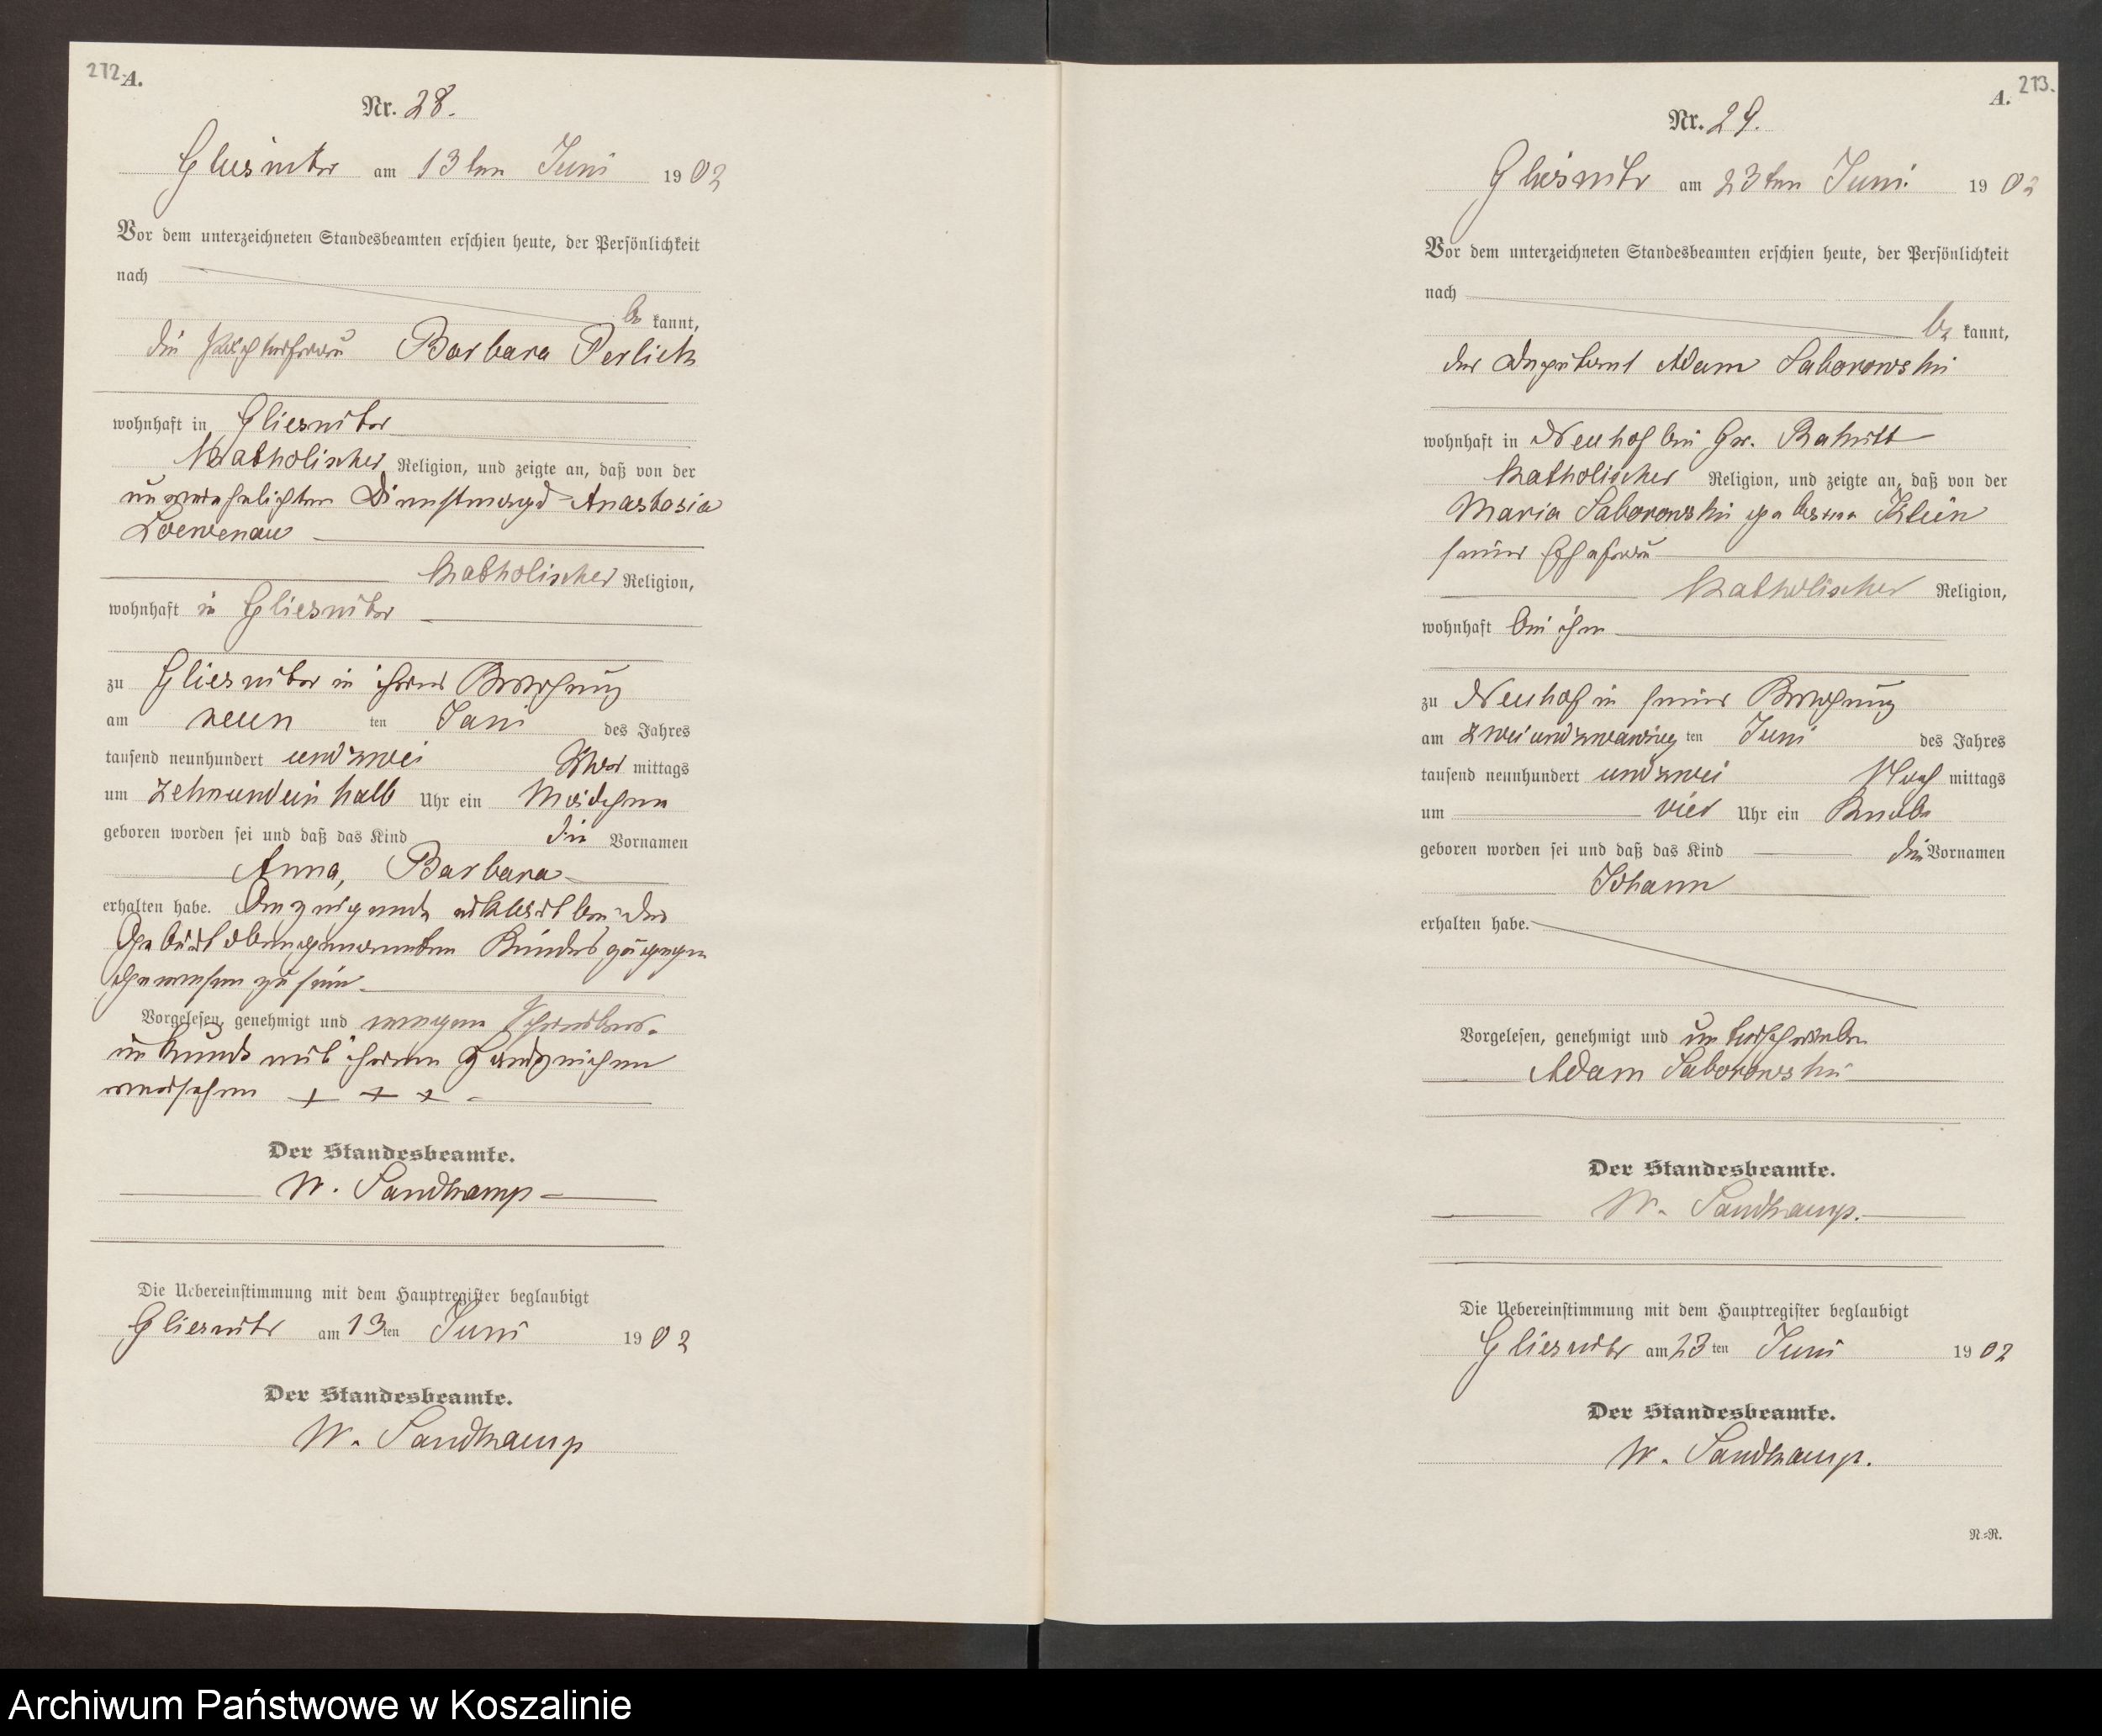 272.
A.
Nr. 28.
Gliesnitz am 13ten Juni 1902
Vor dem unterzeichneten Standesbeamten erschien heute, der Persönlichkeit
nach
be kannt,
die Barbara Perlick
wohnhaft in Gliesnitz
katholischer Religion, und zeigte an, daß von der
unverehelichten Dienstmagd Anastasia
Loewenau
katholischer Religion,
wohnhaft in Gliesnitz
zu Gliesnitz in ihrer Wohnung
am neun ten Juni des Jahres
tausend neunhundert und zwei Vor mittags
um zehnundein halb Uhr ein Mädchen
geboren worden sei und daß das Kind die Vornamen
Anna, Barbara
erhalten habe. Anzeigende erklärt bei der
Geburt obengenannten Kindes zugegen
gewesen zu sein.
Vorgelesen, genehmigt und wegen Schreibens-
unkunde mit ihrem Handzeichen
versehen + + +
Der Standesbeamte.
W. Sandkamp
Die Uebereinstimmung mit dem Hauptregister beglaubigt
Gliesnitz am 13ten Juni 1902
Der Standesbeamte.
W. Sandkamp
213.
A.
Nr. 29.
Gliesnitz am 23ten Juni 1902
Vor dem unterzeichneten Standesbeamten erschien heute, der Persönlichkeit
nach
be kannt,
der Deputant Adam Saborowski
wohnhaft in Neuhof bei Gr.
katholischer Religion, und zeigte an, daß von der
Maria Saborowski geborene Klein
seiner Ehefrau
katholischer Religion,
wohnhaft bei ihm
zu Neuhof in seiner Wohnung
am zweiundzwanzig ten Juni des Jahres
tausend neunhundert und zwei Nach mittags
um vier Uhr ein Knabe
geboren worden sei und daß das Kind die Vornamen
Johann
erhalten habe.
Vorgelesen, genehmigt und unterschrieben
Adam Saborowski
Der Standesbeamte.
W. Sandkamp.
Die Uebereinstimmung mit dem Hauptregister beglaubigt
Gliesnitz am 23ten Juni 1902
Der Standesbeamte.
W. Sandkamp.
N.=R.
Archiwum Państwowe w Koszalinie